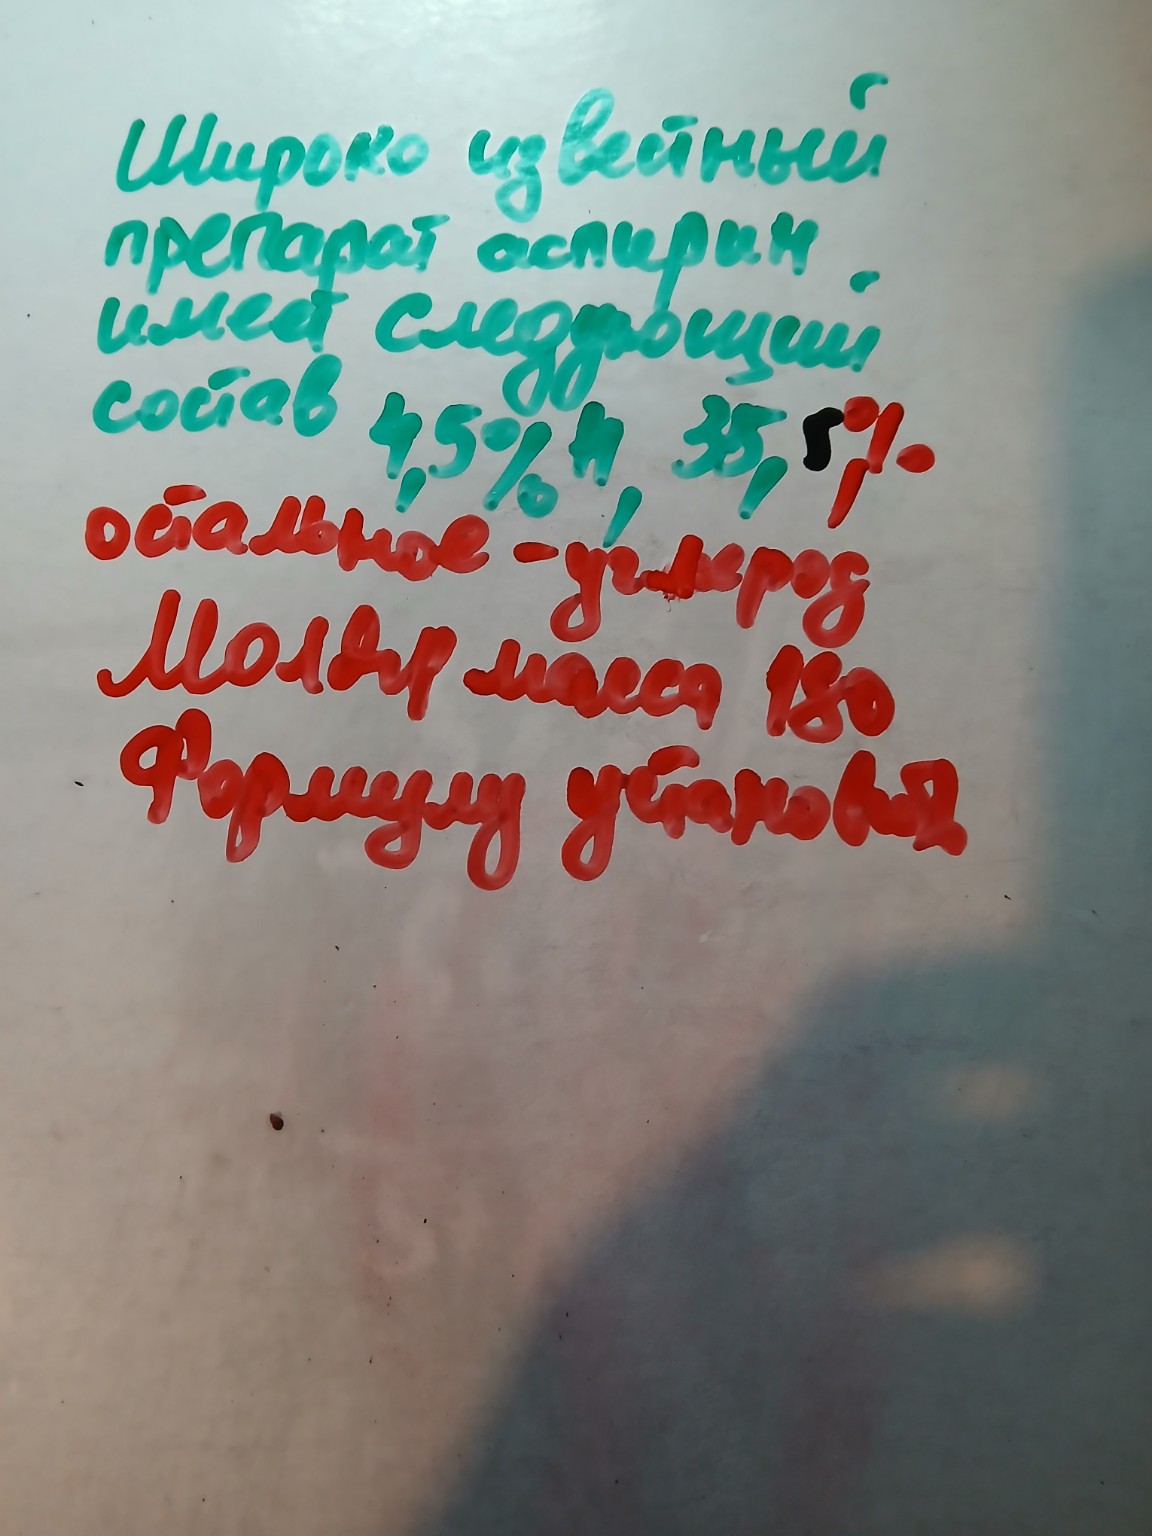 Широко известный
препарат аспирин
имеет следующий
состав 4,5% H, 35,5%
остальное - углерод
Моляр масса 180
Формулу установить